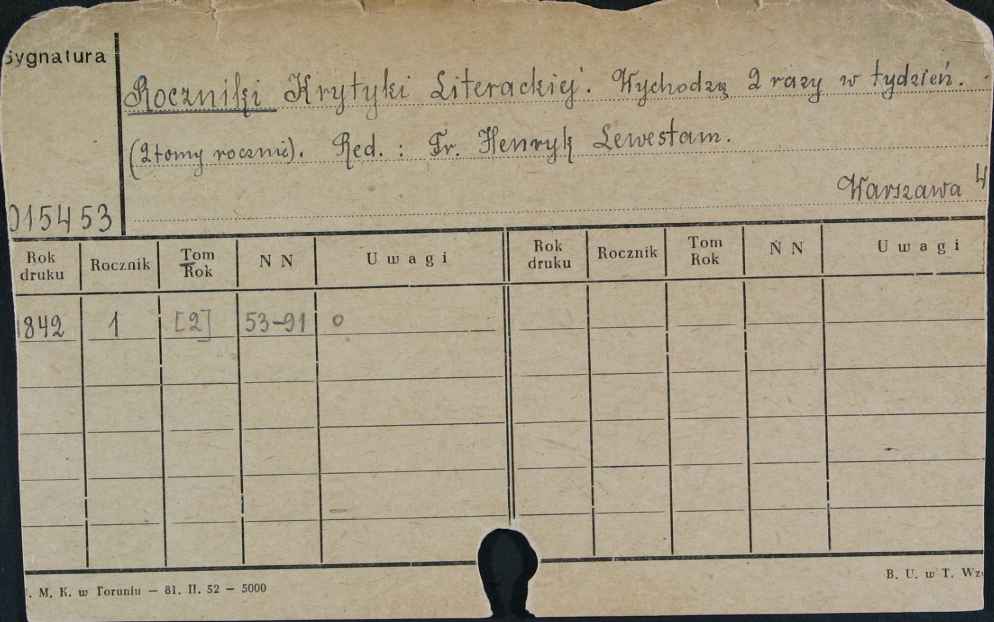 Sygnatura
Roczniki Krytyki Literackiej. Wychodzą 2 razy w tydzień.
(2 tomy rocznie). Red.: Fr. Henryk Lewestam.
Warszawa 4
015453
Rok druku Rocznik Tom Rok N N Uwagi Rok druku Rocznik Tom Rok N N Uwagi
1842 1 [2] 53-91 0
. M. K. w Toruniu — 81. II. 52 — 5000
B. U. w T. Wz